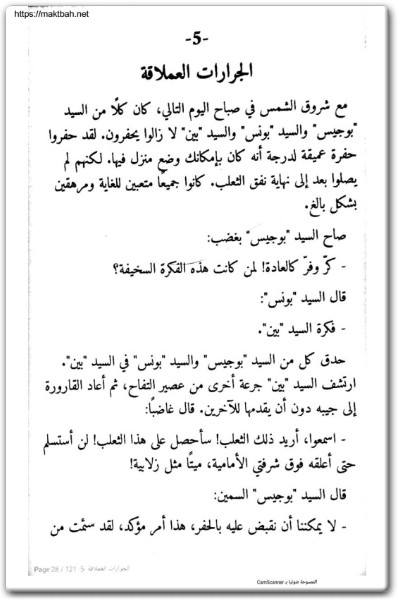 https://maktbah.net
-5-
الجرارات العملاقة
مع شروق الشمس في صباح اليوم التالي، كان كلًا من السيد
"بوجيس" والسيد "بونس" والسيد "بين" لا زالوا يحفرون. لقد حفروا
حفرة عميقة لدرجة أنه كان بإمكانك وضع منزل فيها. لكنهم لم
يصلوا بعد إلى نهاية نفق الثعلب. كانوا جميعًا متعبين للغاية ومرهقين
بشكل بالغ.
صاح السيد "بوجيس" بغضب:
- كرّ وفرّ كالعادة! لمن كانت هذه الفكرة السخيفة؟
قال السيد "بونس":
- فكرة السيد "بين".
حدق كل من السيد "بوجيس" والسيد "بونس" في السيد "بين".
ارتشف السيد "بين" جرعة أخرى من عصير التفاح، ثم أعاد القارورة
إلى جيبه دون أن يقدمها للآخرين. قال غاضبًا:
- اسمعوا، أريد ذلك الثعلب! سأحصل على هذا الثعلب! لن أستسلم
حتى أعلقه فوق شرفتي الأمامية، ميتًا مثل زلابية!
قال السيد "بوجيس" السمين:
- لا يمكننا أن نقبض عليه بالحفر، هذا أمر مؤكد، لقد سئمت من
Page 28 / 121 -5- الجرارات العملاقة
الممسوحة ضوئيا بـ CamScanner